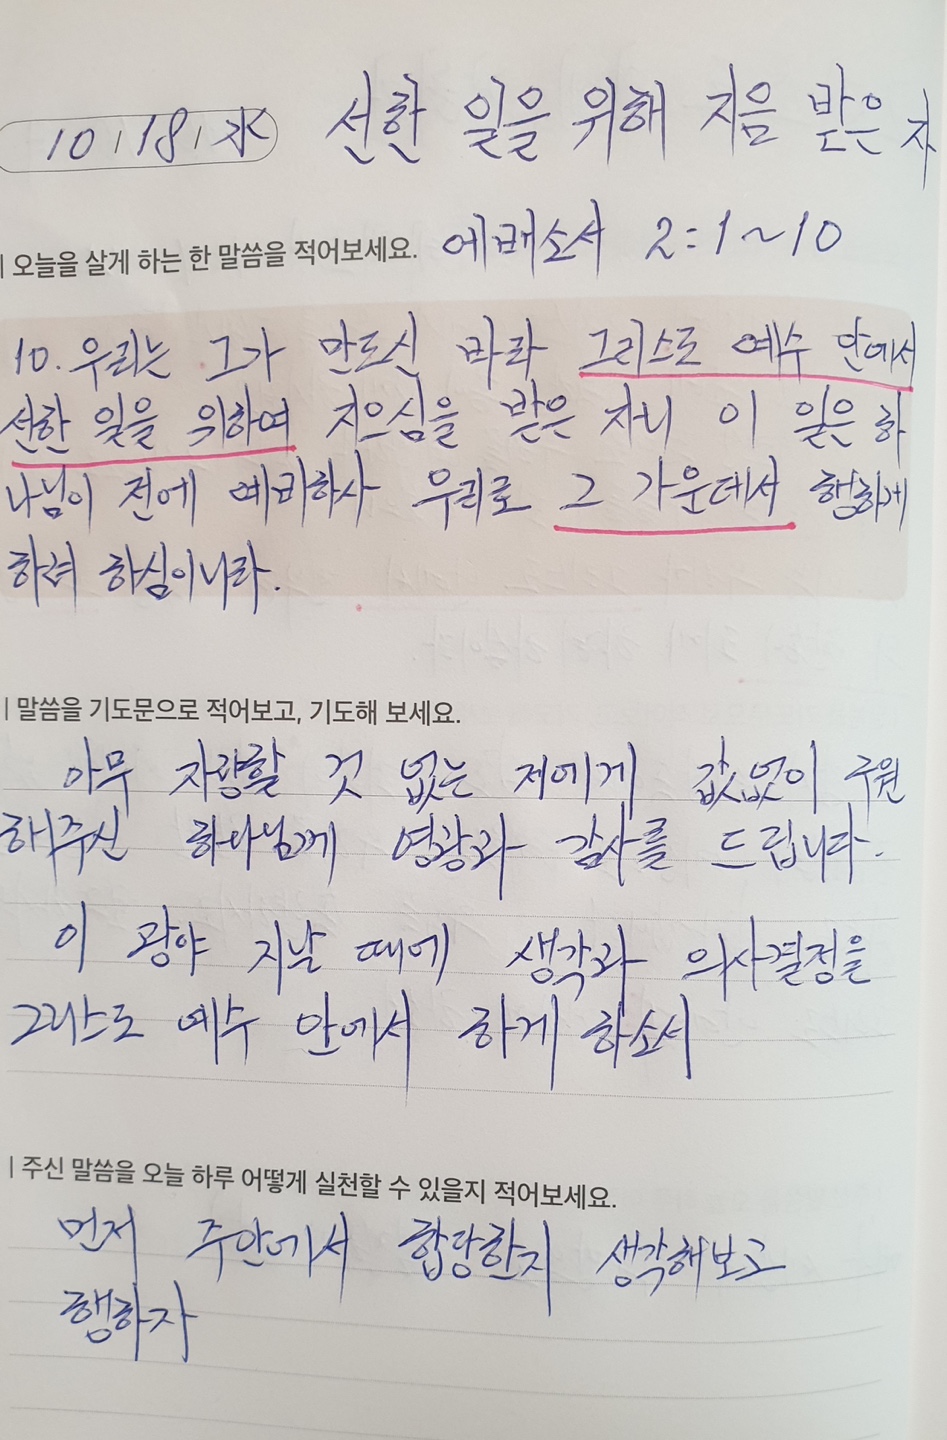 10 / 18 / 水 선한 일을 위해 지음 받은 자
| 오늘을 살게 하는 한 말씀을 적어보세요. 에베소서 2:1~10
10. 우리는 그가 만드신 바라 그리스도 예수 안에서
선한 일을 위하여 지으심을 받은 자니 이 일은 하
나님이 전에 예비하사 우리로 그 가운데서 행하게
하려 하심이니라.
| 말씀을 기도문으로 적어보고, 기도해 보세요.
아무 자랑할 것 없는 저에게 값없이 구원
해주신 하나님께 영광과 감사를 드립니다.
이 광야 지날 때에 생각과 의사결정을
그리스도 예수 안에서 하게 하소서
| 주신 말씀을 오늘 하루 어떻게 실천할 수 있을지 적어보세요.
먼저 주안에서 합당한지 생각해보고
행하자